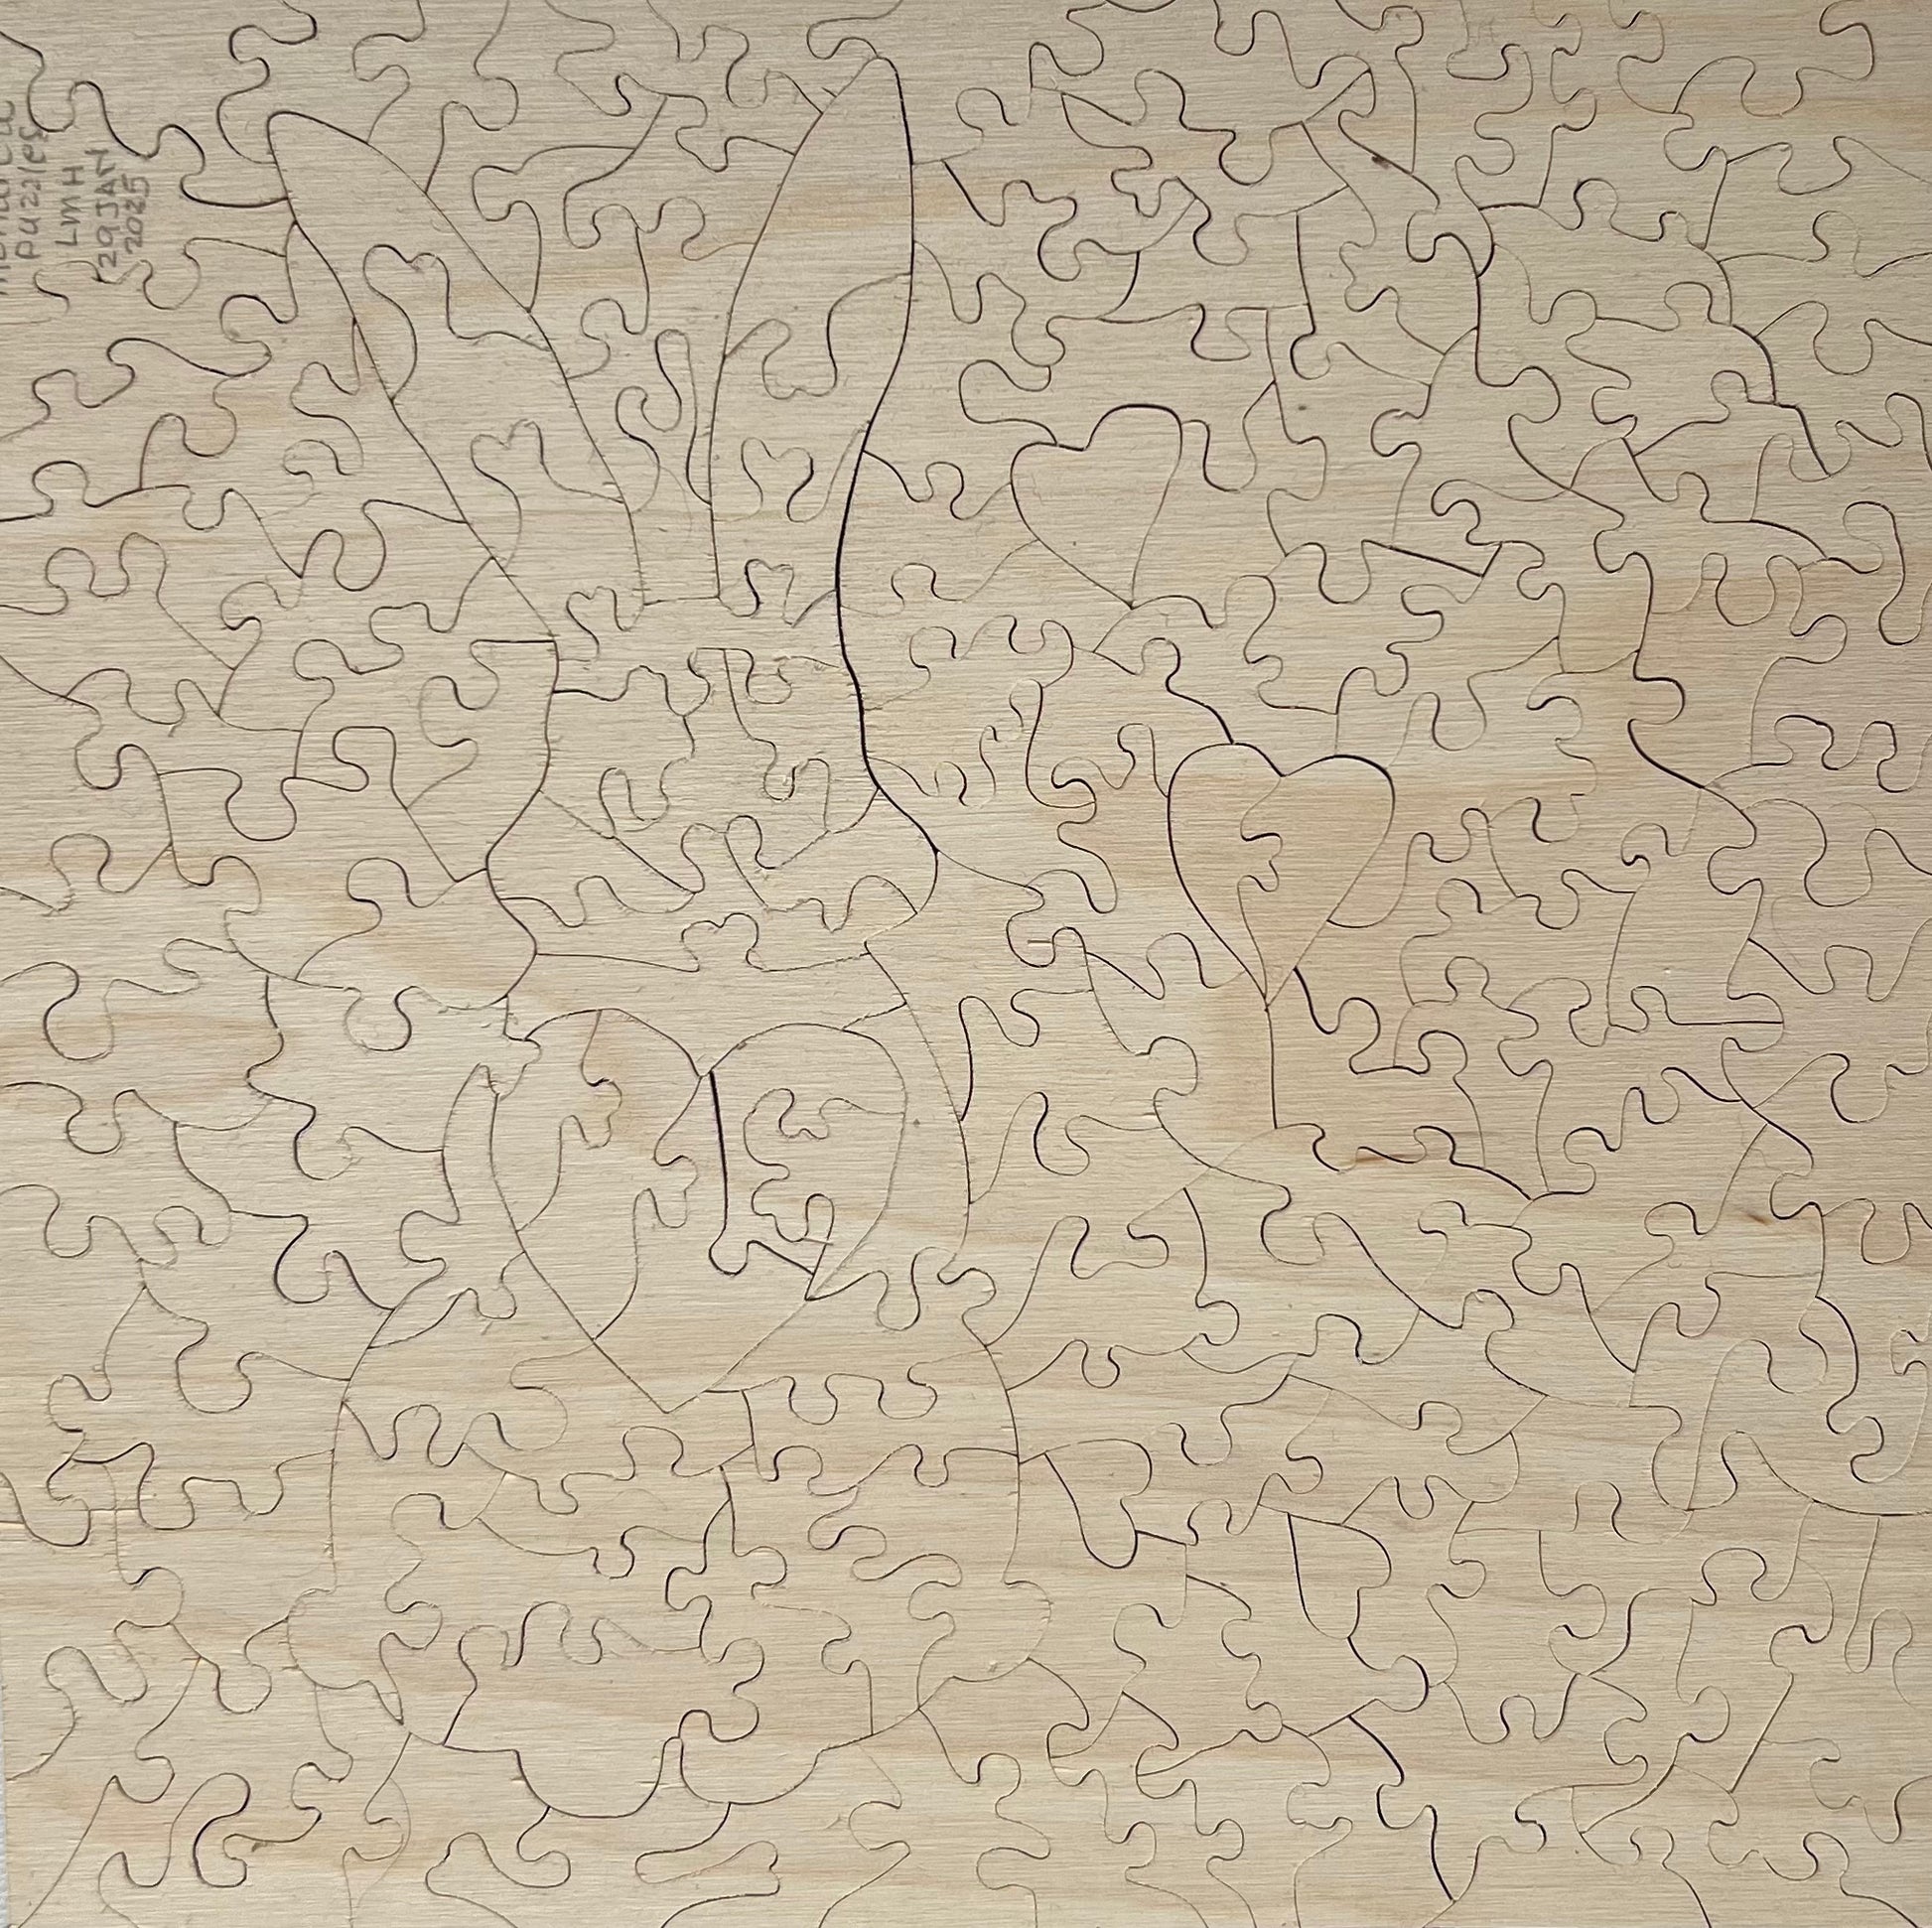 Puzzles
LMH
29JAN
2025